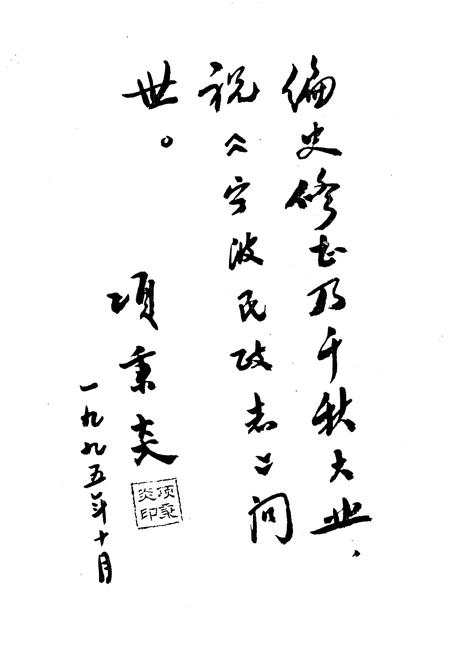 编史修志乃千秋大业、
祝《宁波民政志》问
世。
项秉炎
一九九五年十月
项秉
炎印